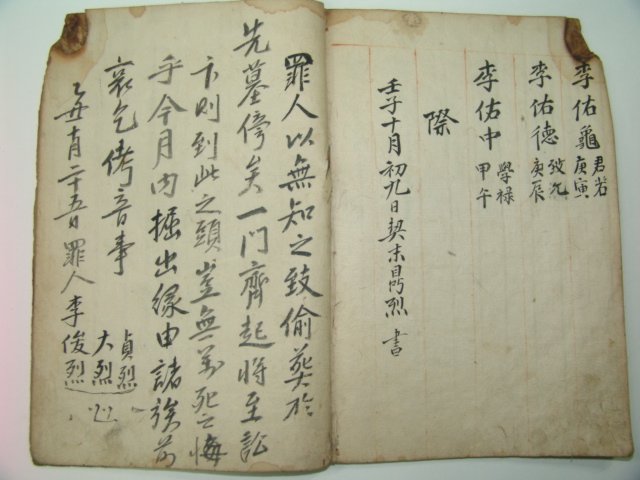 李佑龜 君若 庚寅
李佑德 孜允 庚辰
李佑中 學祿 甲午
際
壬子十月初九日契末昌烈書
罪人以無知之致偷葬於
先墓傍矣一門齊起將至訟
卞則到此之頭豈無萬死之悔
乎今月內掘出緣由諸族前
哀乞侤音事
乙丑十月二十五日罪人李俊烈
大烈
貞烈